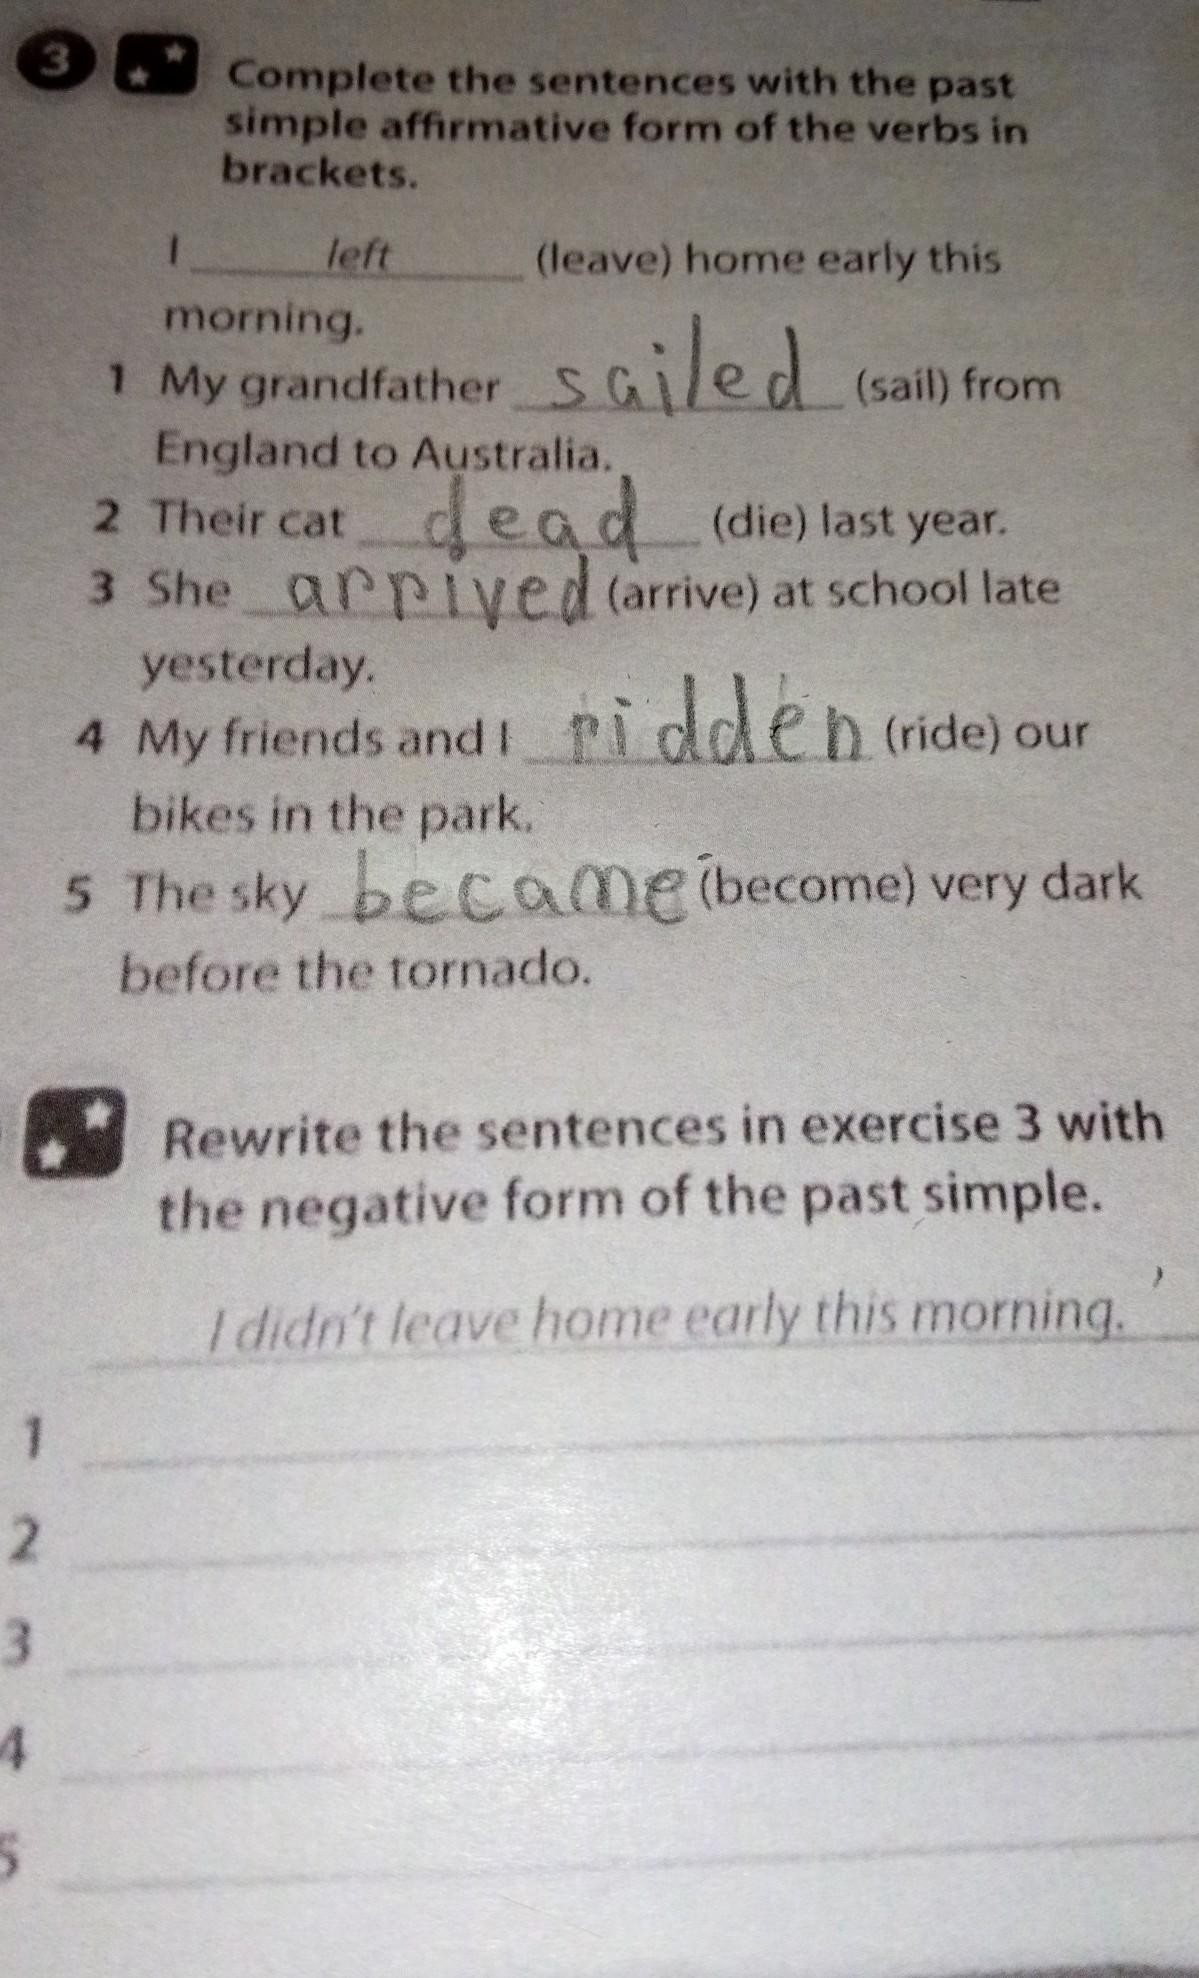 3 Complete the sentences with the past
simple affirmative form of the verbs in
brackets.
I left (leave) home early this
morning.
1 My grandfather sailed (sail) from
England to Australia.
2 Their cat dead (die) last year.
3 She arrived (arrive) at school late
yesterday.
4 My friends and I ridden (ride) our
bikes in the park.
5 The sky became (become) very dark
before the tornado.
Rewrite the sentences in exercise 3 with
the negative form of the past simple.
I didn't leave home early this morning.
1
2
3
4
5